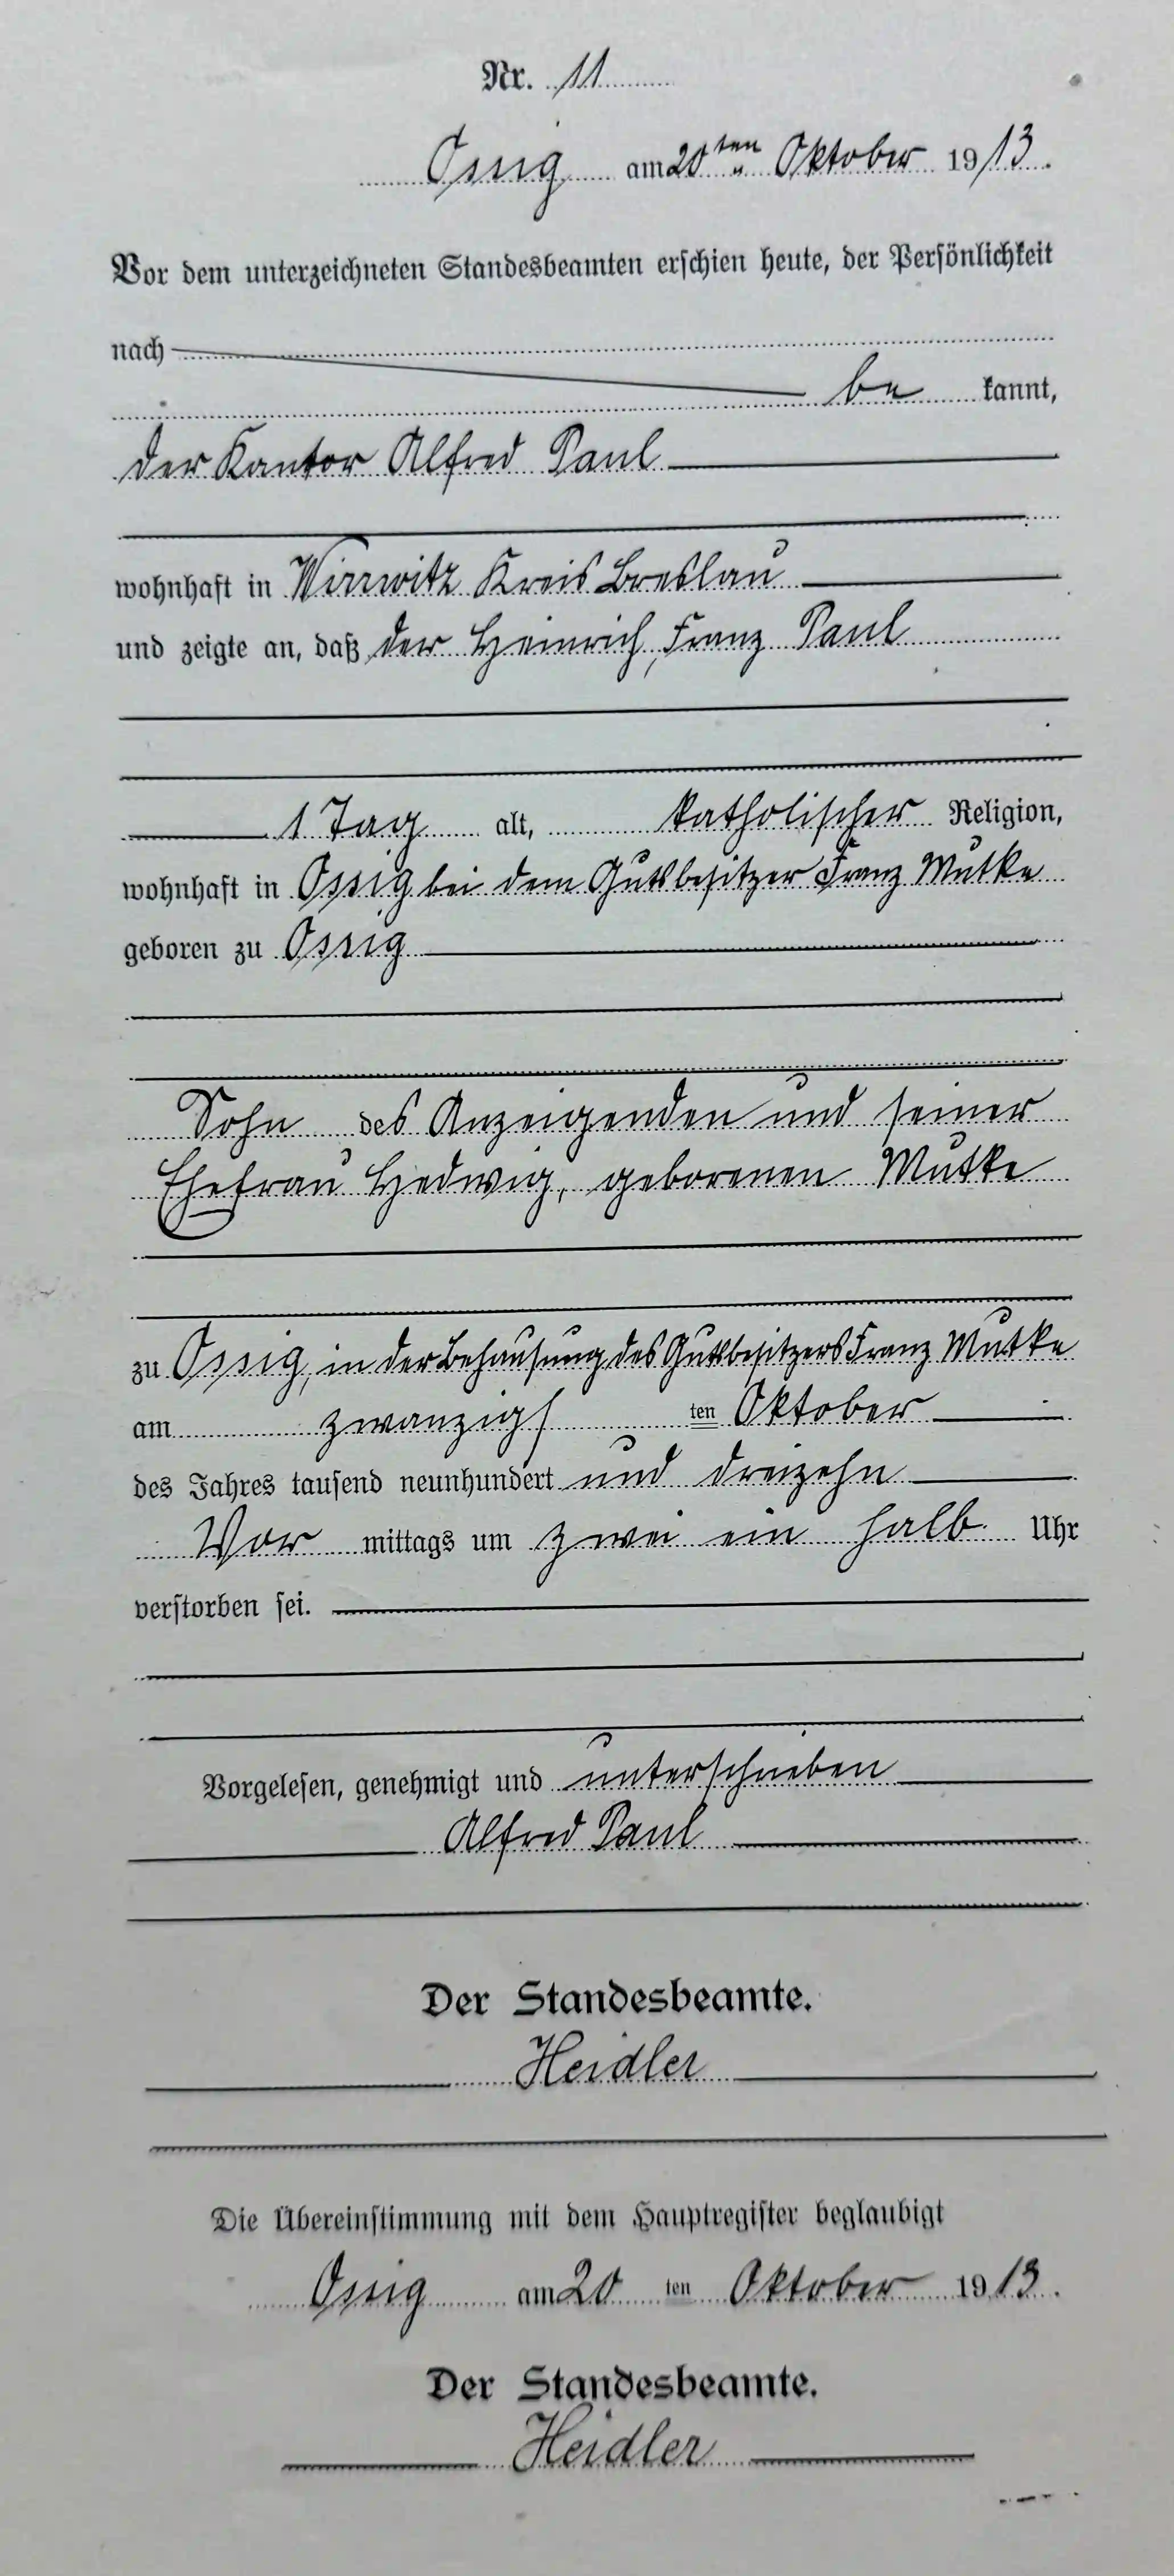 Nr. 11
Ossig am 20ten Oktober 1913.
Vor dem unterzeichneten Standesbeamten erschien heute, der Persönlichkeit
nach
be kannt,
der Kantor Alfred Paul
wohnhaft in Wirrwitz Kreis Breslau
und zeigte an, daß der Heinrich, Franz Paul
1 Tag alt, katholischer Religion,
wohnhaft in Ossig bei dem Gutsbesitzer Franz Mutke
geboren zu Ossig
Sohn des Anzeigenden und seiner
Ehefrau Hedwig, geborenen Mutke
zu Ossig, in der Behausung des Gutsbesitzers Franz Mutke
am zwanzigsten Oktober
des Jahres tausend neunhundert und dreizehn
Vor mittags um zwei ein halb Uhr
verstorben sei.
Vorgelesen, genehmigt und unterschrieben
Alfred Paul
Der Standesbeamte.
Heidler
Die Übereinstimmung mit dem Hauptregister beglaubigt
Ossig am 20 ten Oktober 1913.
Der Standesbeamte.
Heidler